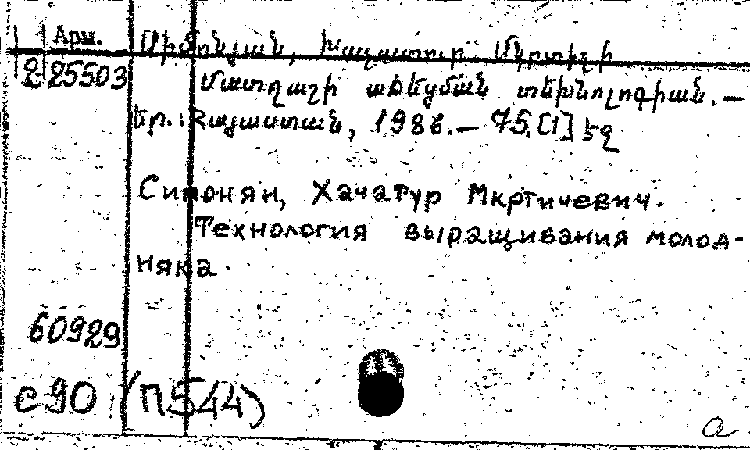 Арм.
Սիմոնյան, Խաչատուր Մկրտիչի
2-25503
Մատղաշի աճեցման տեխնոլոգիան. –
Եր.: Հայաստան, 1986. – 75, [1] էջ
Симонян, Хачатур Мкртичевич.
Технология выращивания молод-
няка.
60929
с90 (П544)
а